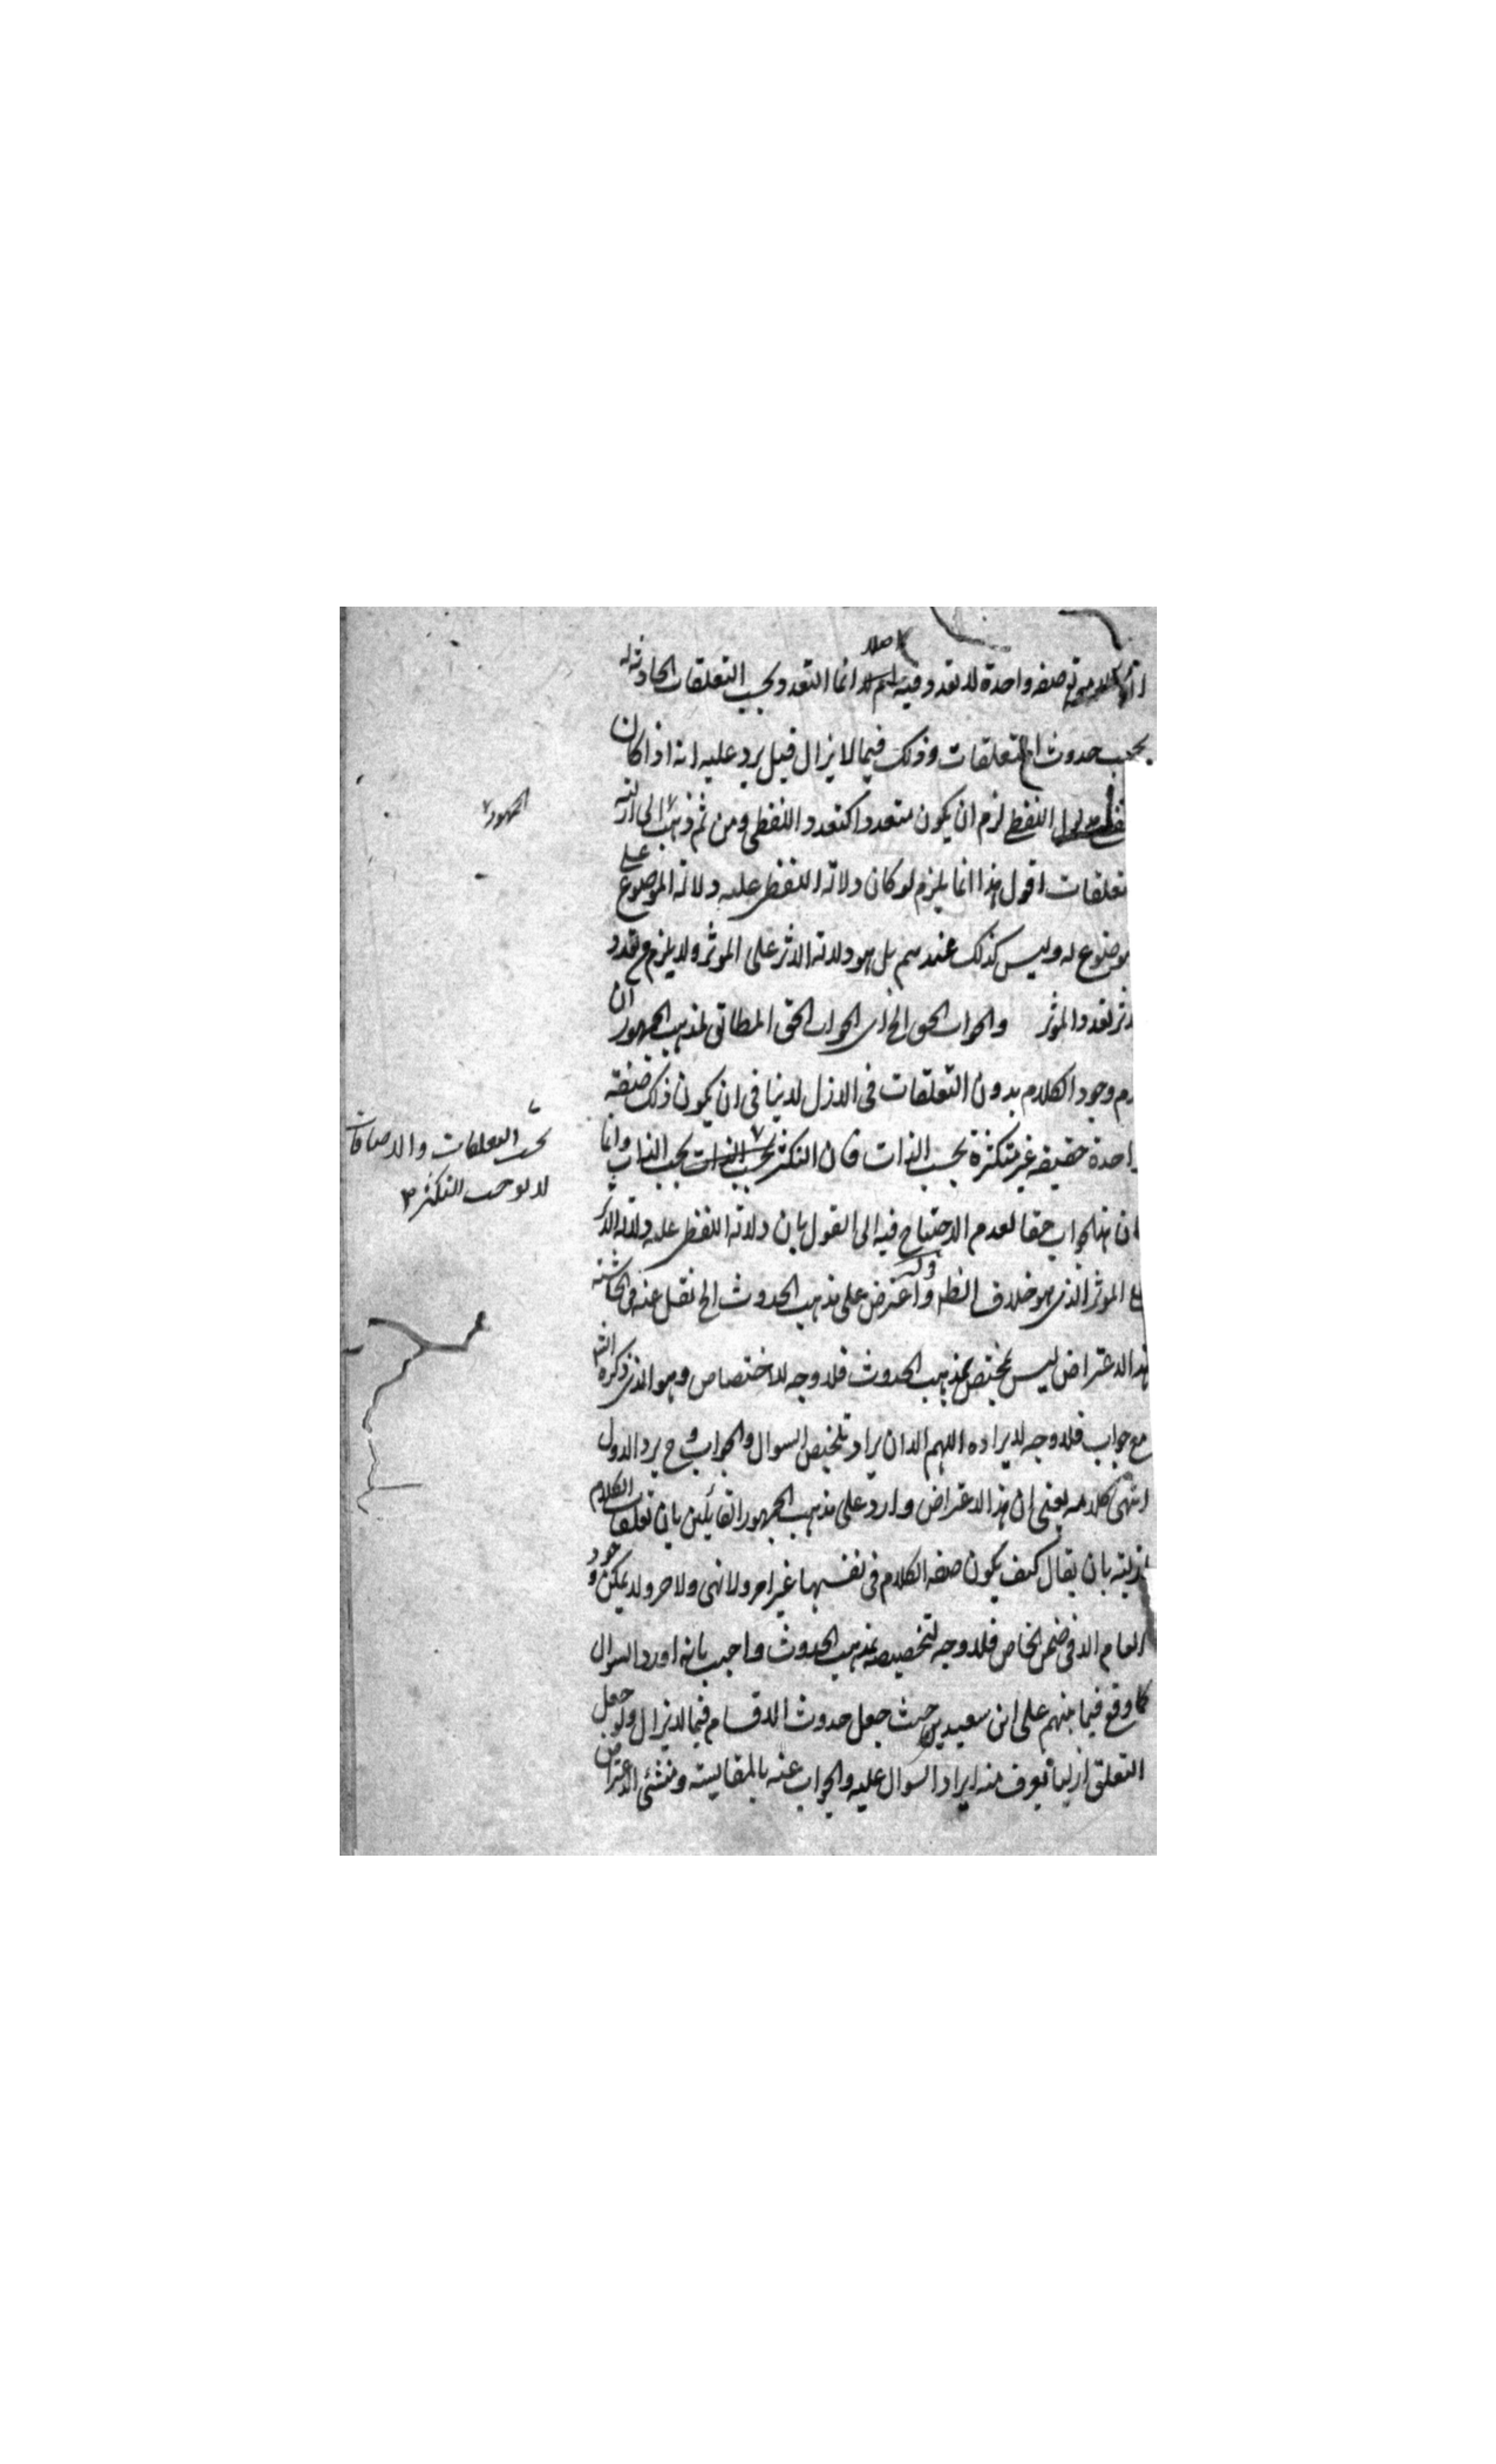 صفة واحدة لا تعدد فيه اصلا انما التعدد بحسب التعلقات الحادثة
بحسب حدوث المتعلقات وذلك فيما لا يزال قيل يرد عليه انه اذا كان
مدلول اللفظ لزم ان يكون متعددا كتعدد اللفظي ومن ثم ذهب الجمهور الى ازلية
تعلقات اقول هذا انما يلزم لو كان دلالة اللفظ عليه دلالة الموضوع على
موضوع له وليس كذلك عندهم بل هو دلالة الاثر على الموثر ولا يلزم من تعدد
تعدد الموثر والجواب الحق الخ اى الجواب الحق المطابق لمذهب الجمهور ان
وجود الكلام بدون التعلقات فى الازل لا ينافى ان يكون ذلك صفة
واحدة حقيقة غير متكثرة بحسب الذات فان التكثر بحسب التعلقات والاضافات لا يوجب التكثر بحسب الذات وانما
هذا الجواب حقا لعدم الاحتياج فيه الى القول بان دلالة اللفظ عليه دلالة الاثر
الموثر الذى هو خلاف الظ قوله واعترض على مذهب الحدوث الخ نقل عنه فى الحاشية
هذا الاعتراض ليس بمختص بمذهب الحدوث فلا وجه للاختصاص وهو الذى ذكره الشم
مع جواب فلا وجه لايراده اللهم الا ان يراد تلخيص السوال والجواب وح يرد الاول
انتهى كلامه يعنى ان هذا الاعتراض وارد على مذهب الجمهور القائلين بان تعلقات الكلام
ازلية بان يقال كيف يكون صفة الكلام فى نفسها غير امر ولا نهى ولا خبر ولا يمكن وجود
العام الا فى ضمن الخاص فلا وجه لتخصيصه بمذهب الحدوث واجيب بانه اورد السوال
كما وقع فيما بينهم على ابن سعيد حيث جعل حدوث الاقسام فيما لا يزال ولو جعل
التعلق ازليا يعرف منه ايراد السوال عليه والجواب عنه بالمقايسة ومنشئ الاعتراض